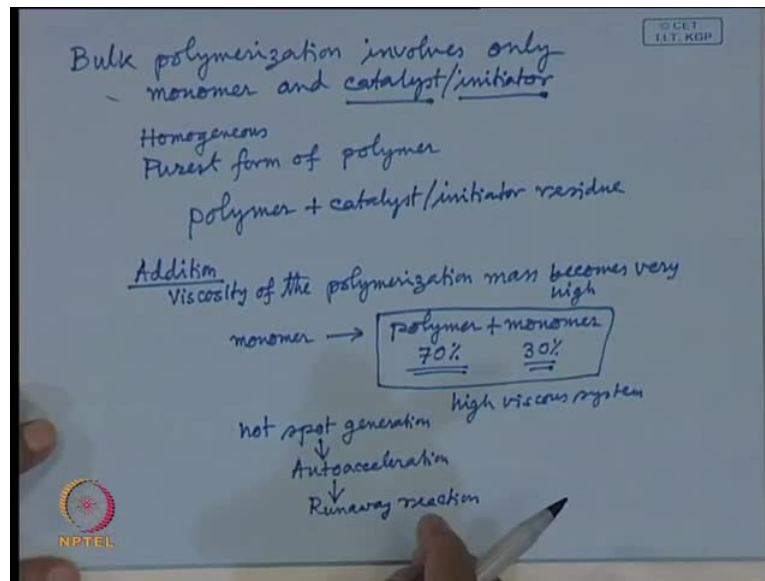 © CET
I.I.T. KGP
Bulk polymerization involves only
monomer and catalyst/initiator
Homogeneous
Purest form of polymer
polymer + catalyst/initiator residue
Addition
Viscosity of the polymerization mass becomes very
high
monomer → polymer + monomer
70% 30%
high viscous system
hot spot generation
↓
Autoacceleration
↓
Runaway reaction
NPTEL